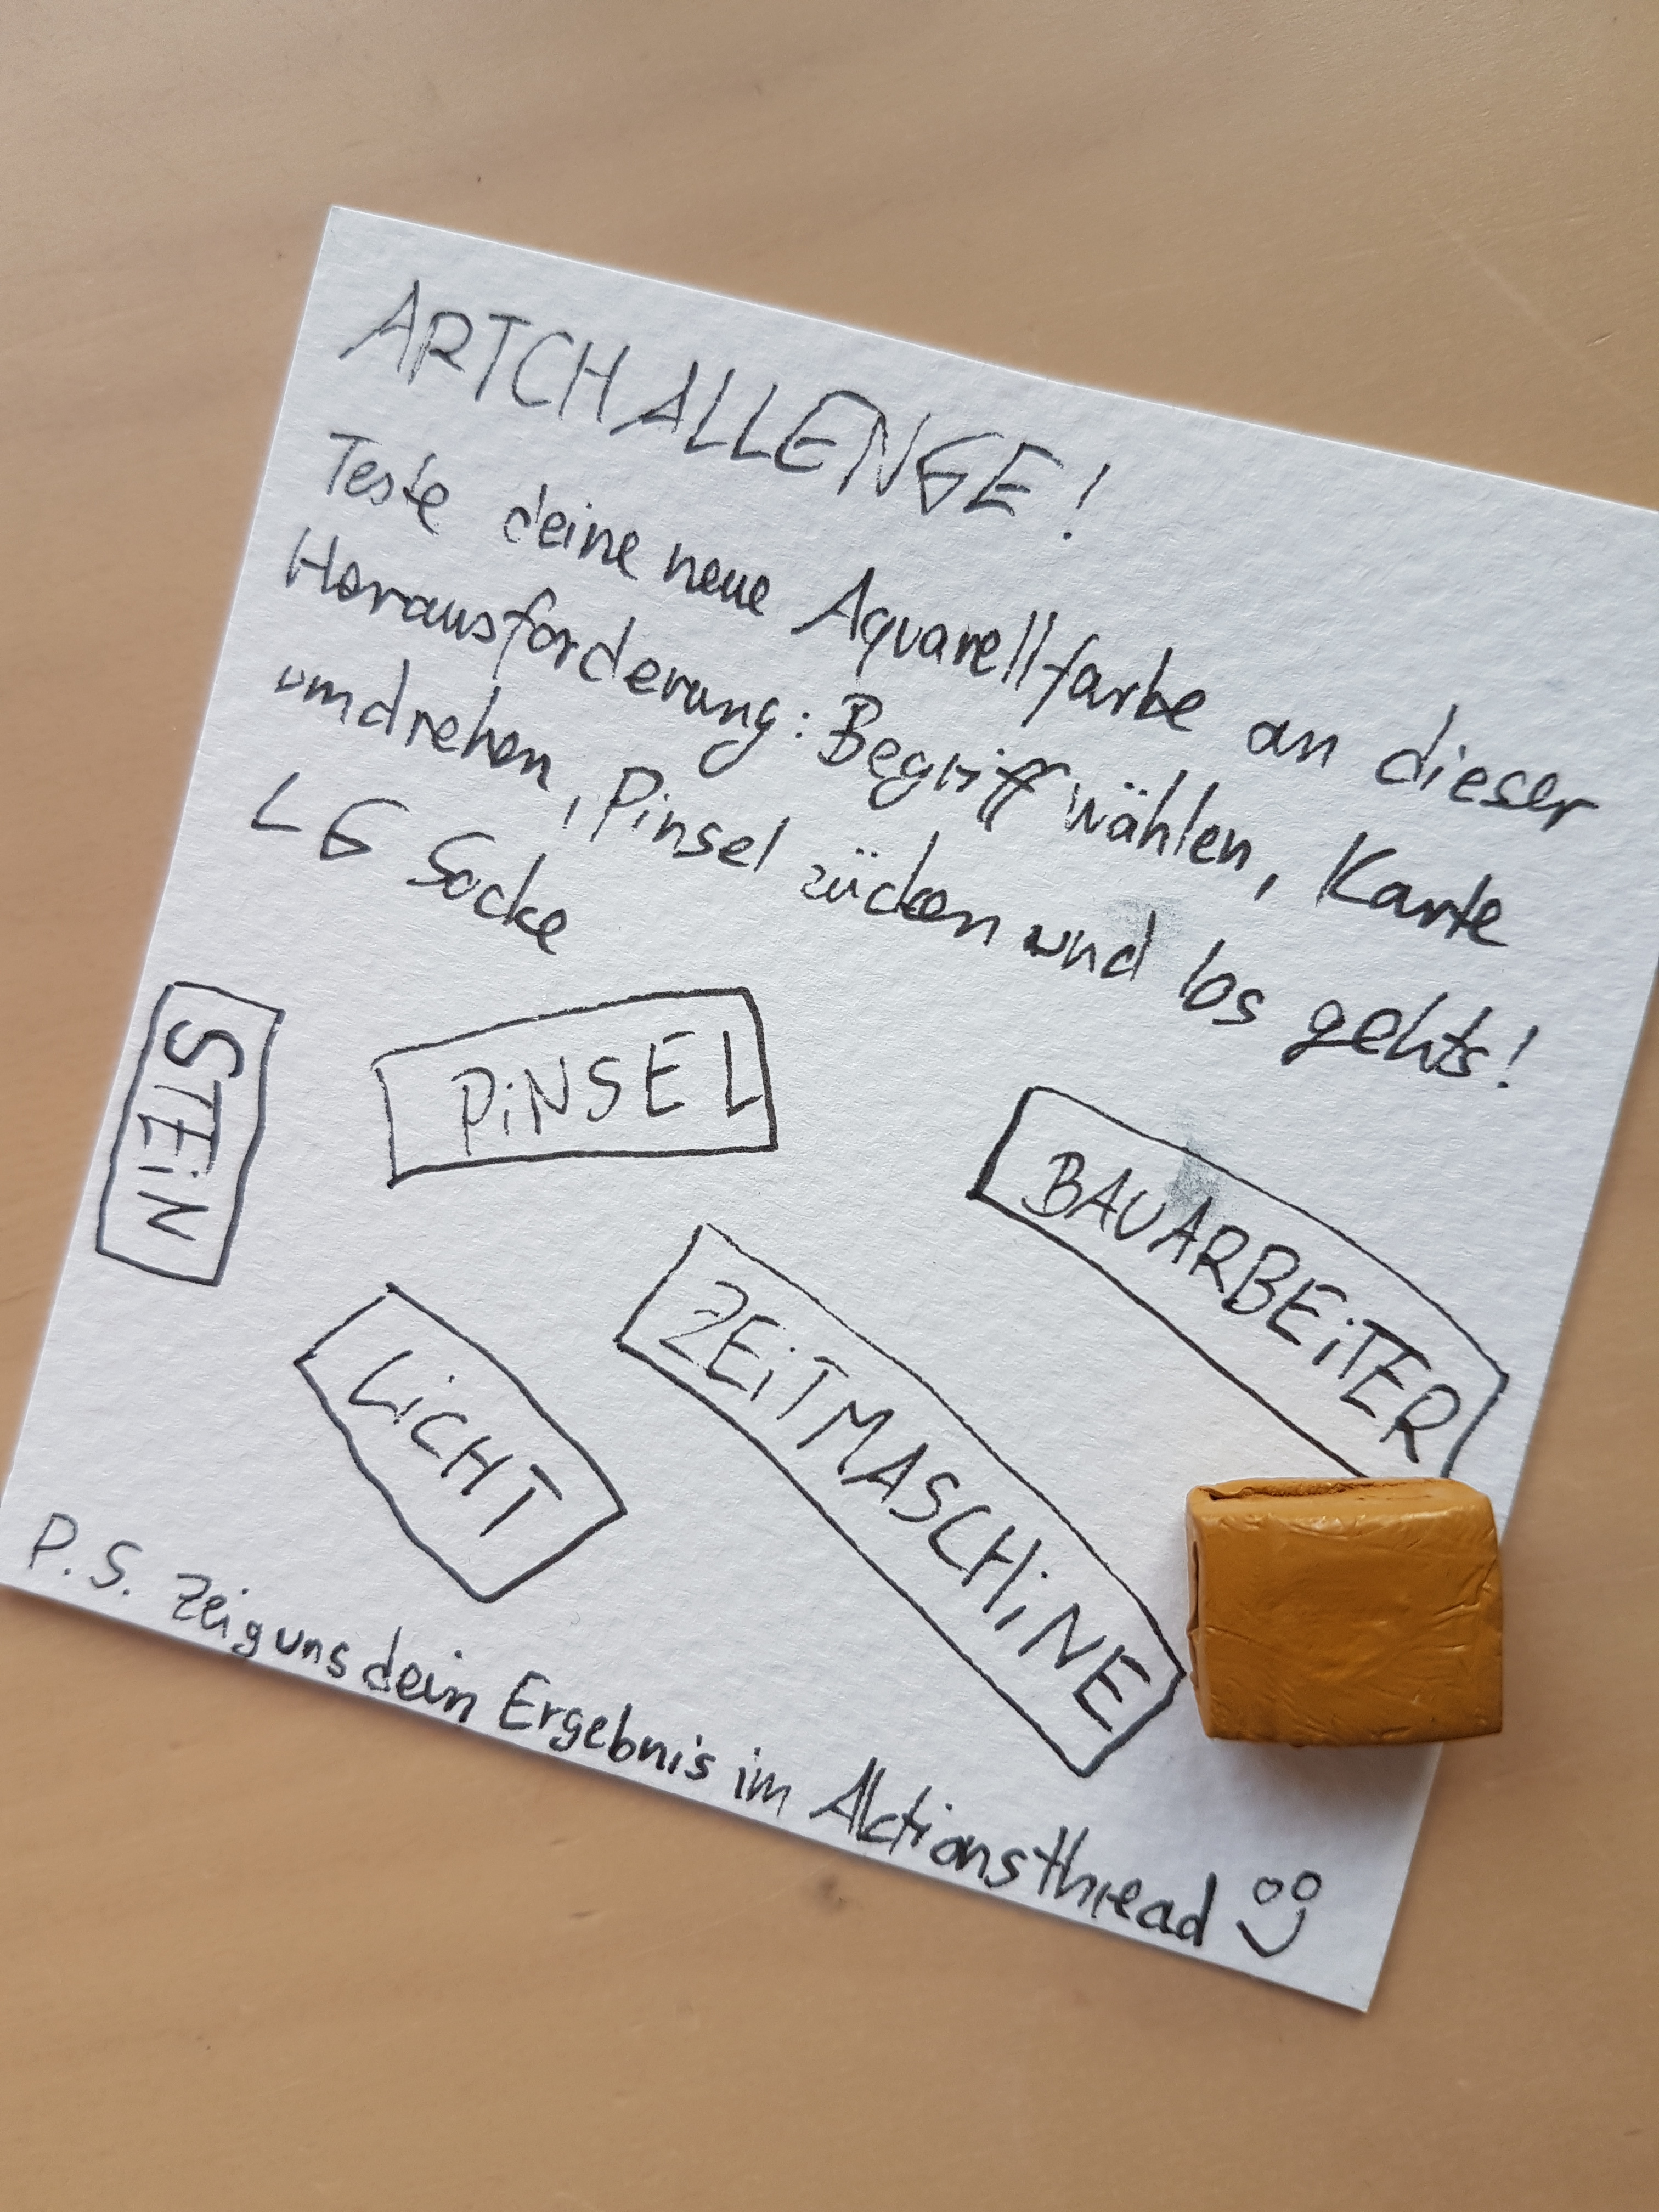 ARTCHALLENGE!
Teste deine neue Aquarellfarbe an dieser
Herausforderung: Begriff wählen, Karte
umdrehen, Pinsel zücken und los gehts!
LG Socke
STEiN
PiNSEL
BAUARBEiTER
ZEiTMASCHiNE
LiCHT
P.S. Zeig uns dein Ergebnis im Aktionsthread